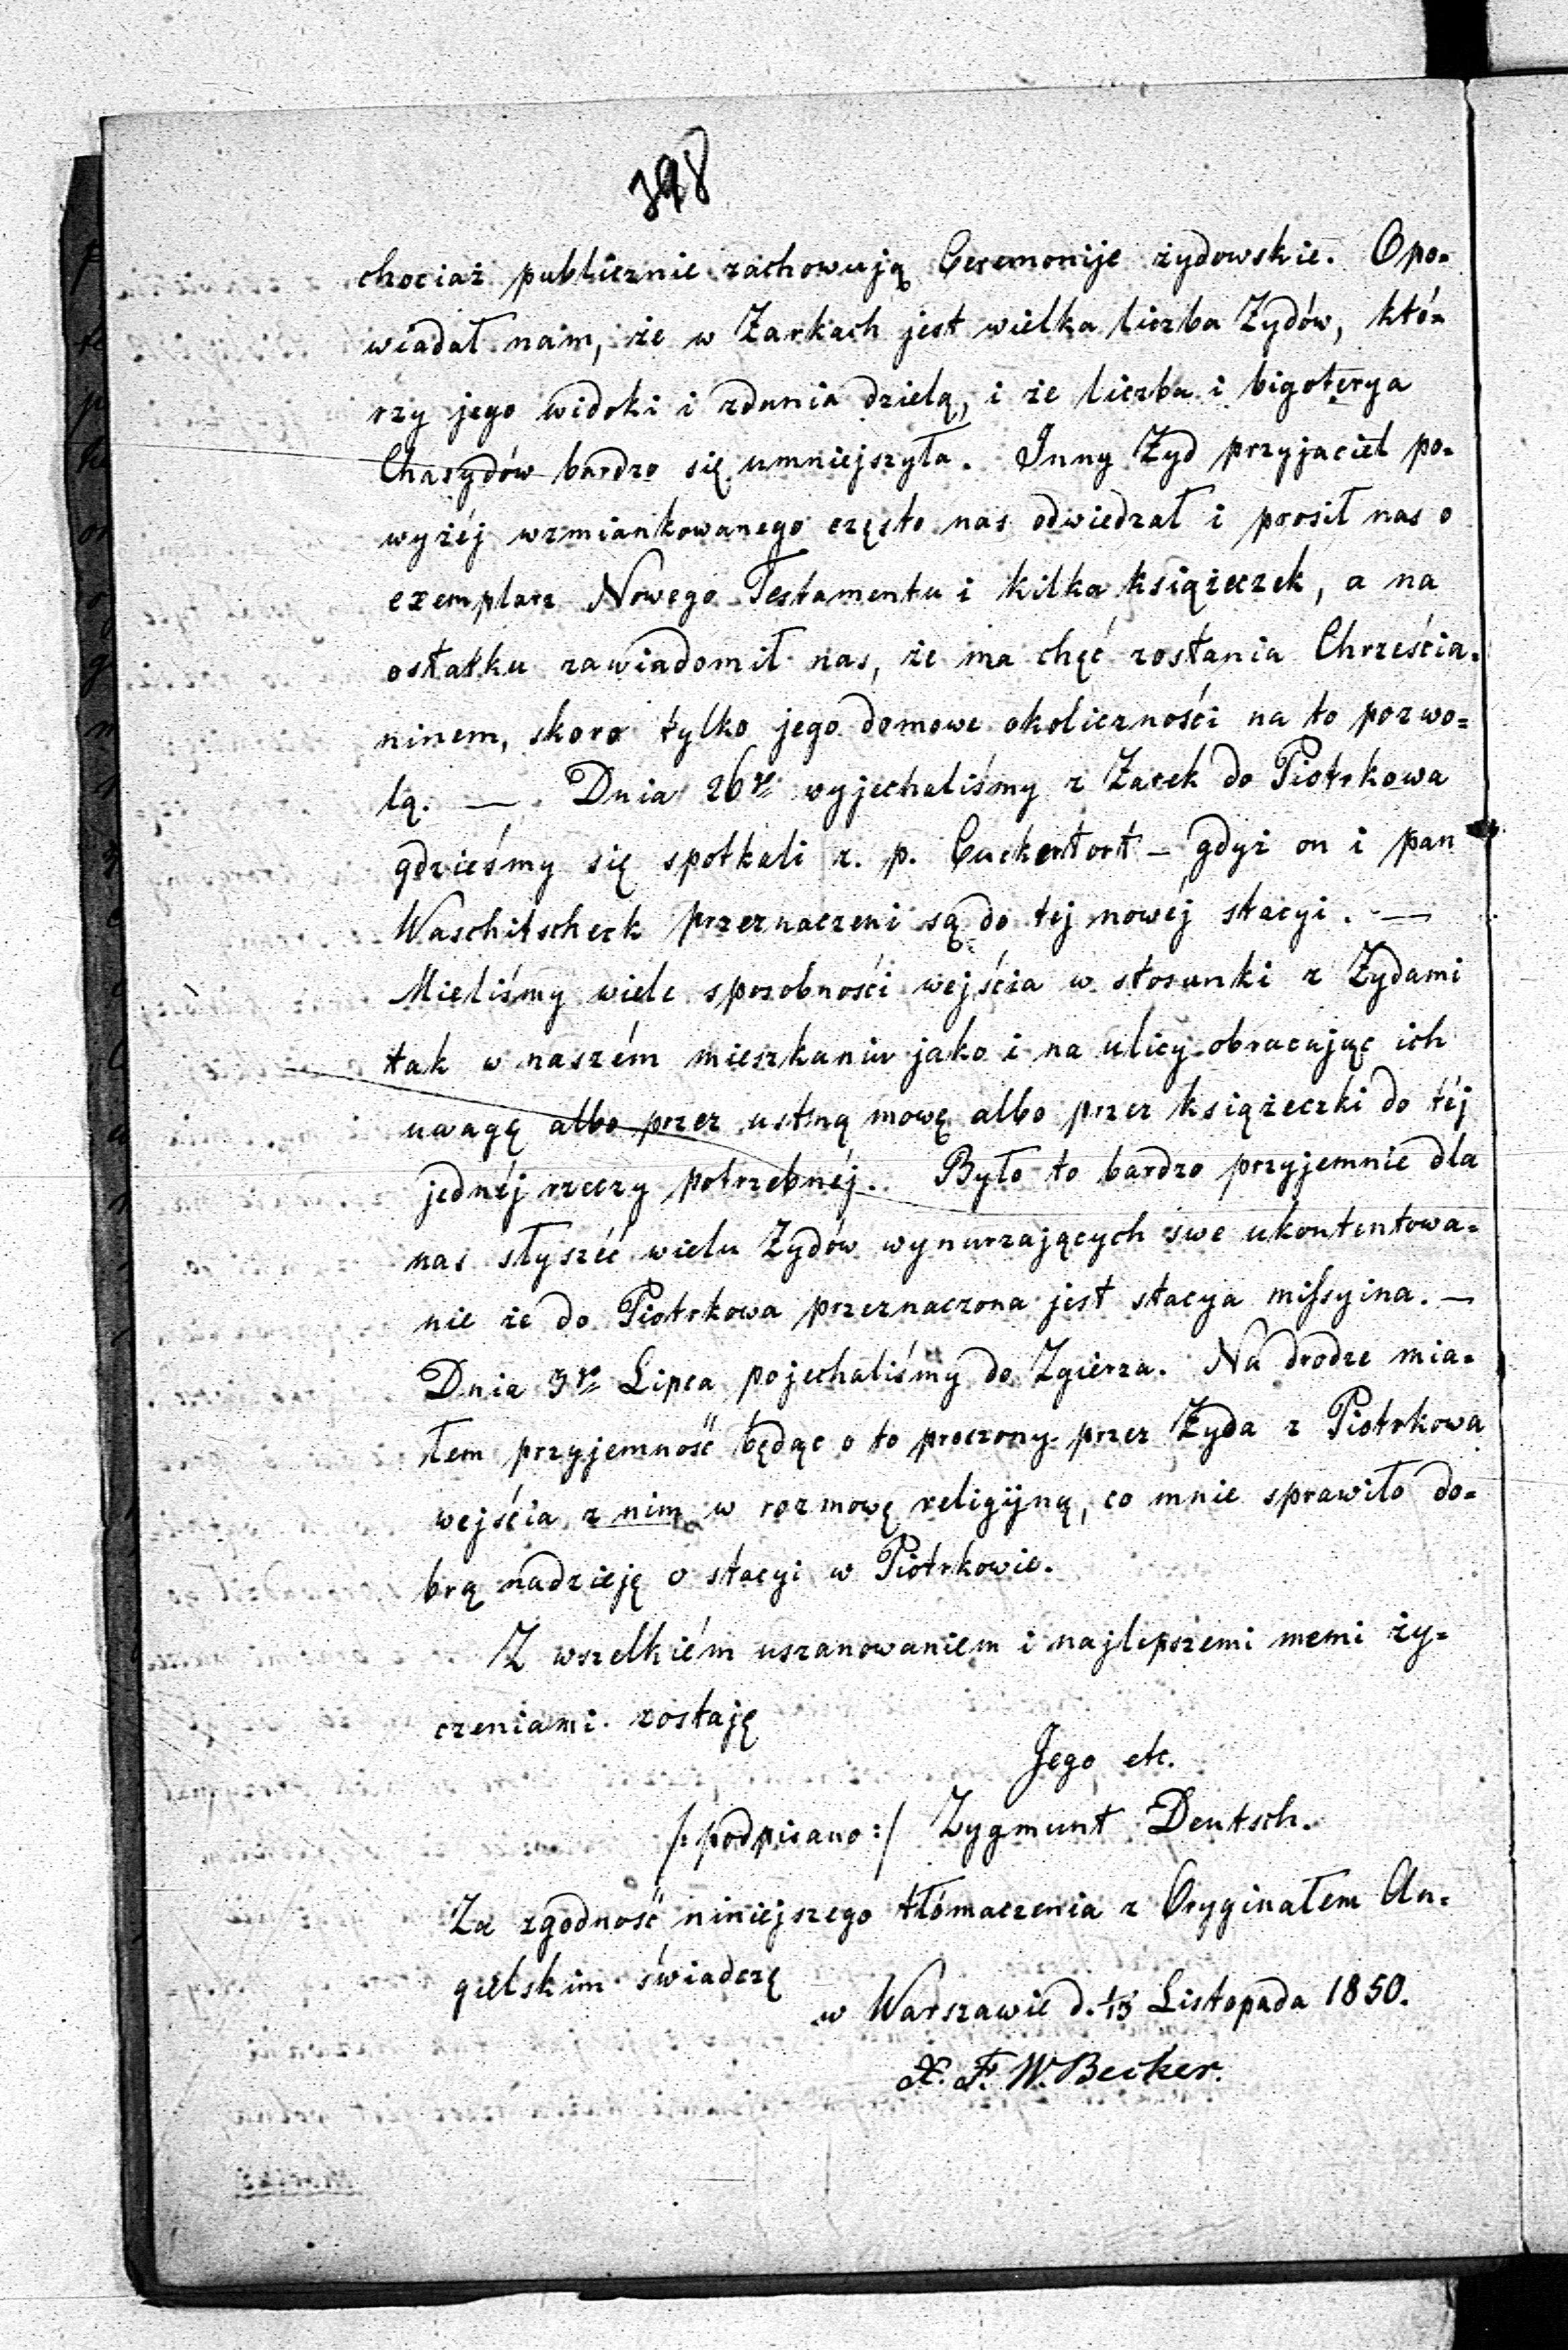 398
chociaż publicznie zachowują Ceremonije żydowskie. Opo-
wiadał nam, że w Żarkach jest wielka liczba Żydów, któ-
rzy jego widoki i zdania dzielą, i że liczba i bigoterya
Chasydów bardzo się umniejszyła. Inny Żyd przyjaciel po-
wyżéj wzmiankowanego często nas odwiedzał i prosił nas o
exemplarz Nowego Testamentu i kilka książeczek, a na
ostatku zawiadomił nas, że ma chęć zostania Chrześcia-
ninem, skoro tylko jego domowe okoliczności na to pozwo-
lą. — Dnia 26go wyjechaliśmy z Żarek do Piotrkowa
gdzieśmy się spotkali z. p. Cuckertort – gdyż on i pan
Waschitscheck przeznaczeni są do tej nowéj stacyi. —
Mieliśmy wiele sposobności wejścia w stosunki z Żydami
tak w naszém mieszkaniu jako i na ulicy obracając ich
uwagę albo przez ustną mowę albo przez książeczki do téj
jednéj rzeczy potrzebnéj. Było to bardzo przyjemnie dla
nas słyszéć wielu Żydów wynurzających swe ukontentowa-
nie że do Piotrkowa przeznaczona jest stacya missyina. —
Dnia 3go Lipca pojechaliśmy do Zgierza. Na drodze mia-
łem przyjemność będąc o to proczony przez Żyda z Piotrkowa
wejścia z nim w rozmowę religijną, co mnie sprawiło do-
brą nadzieję o stacyi w Piotrkowie.
Z wszelkiém uszanowaniem i najlepszemi memi ży-
czeniami zostaję
Jego etc.
/: podpisano :/ Zygmunt Deutsch.
Za zgodność niniejszego tłómaczenia z Oryginałem An-
gielskim świadczę
w Warszawie d. 1/13 Listopada 1850.
X. F. W. Becker.